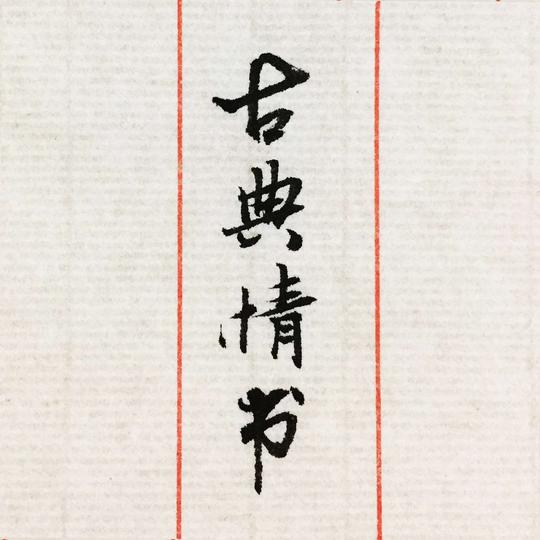 古典情书